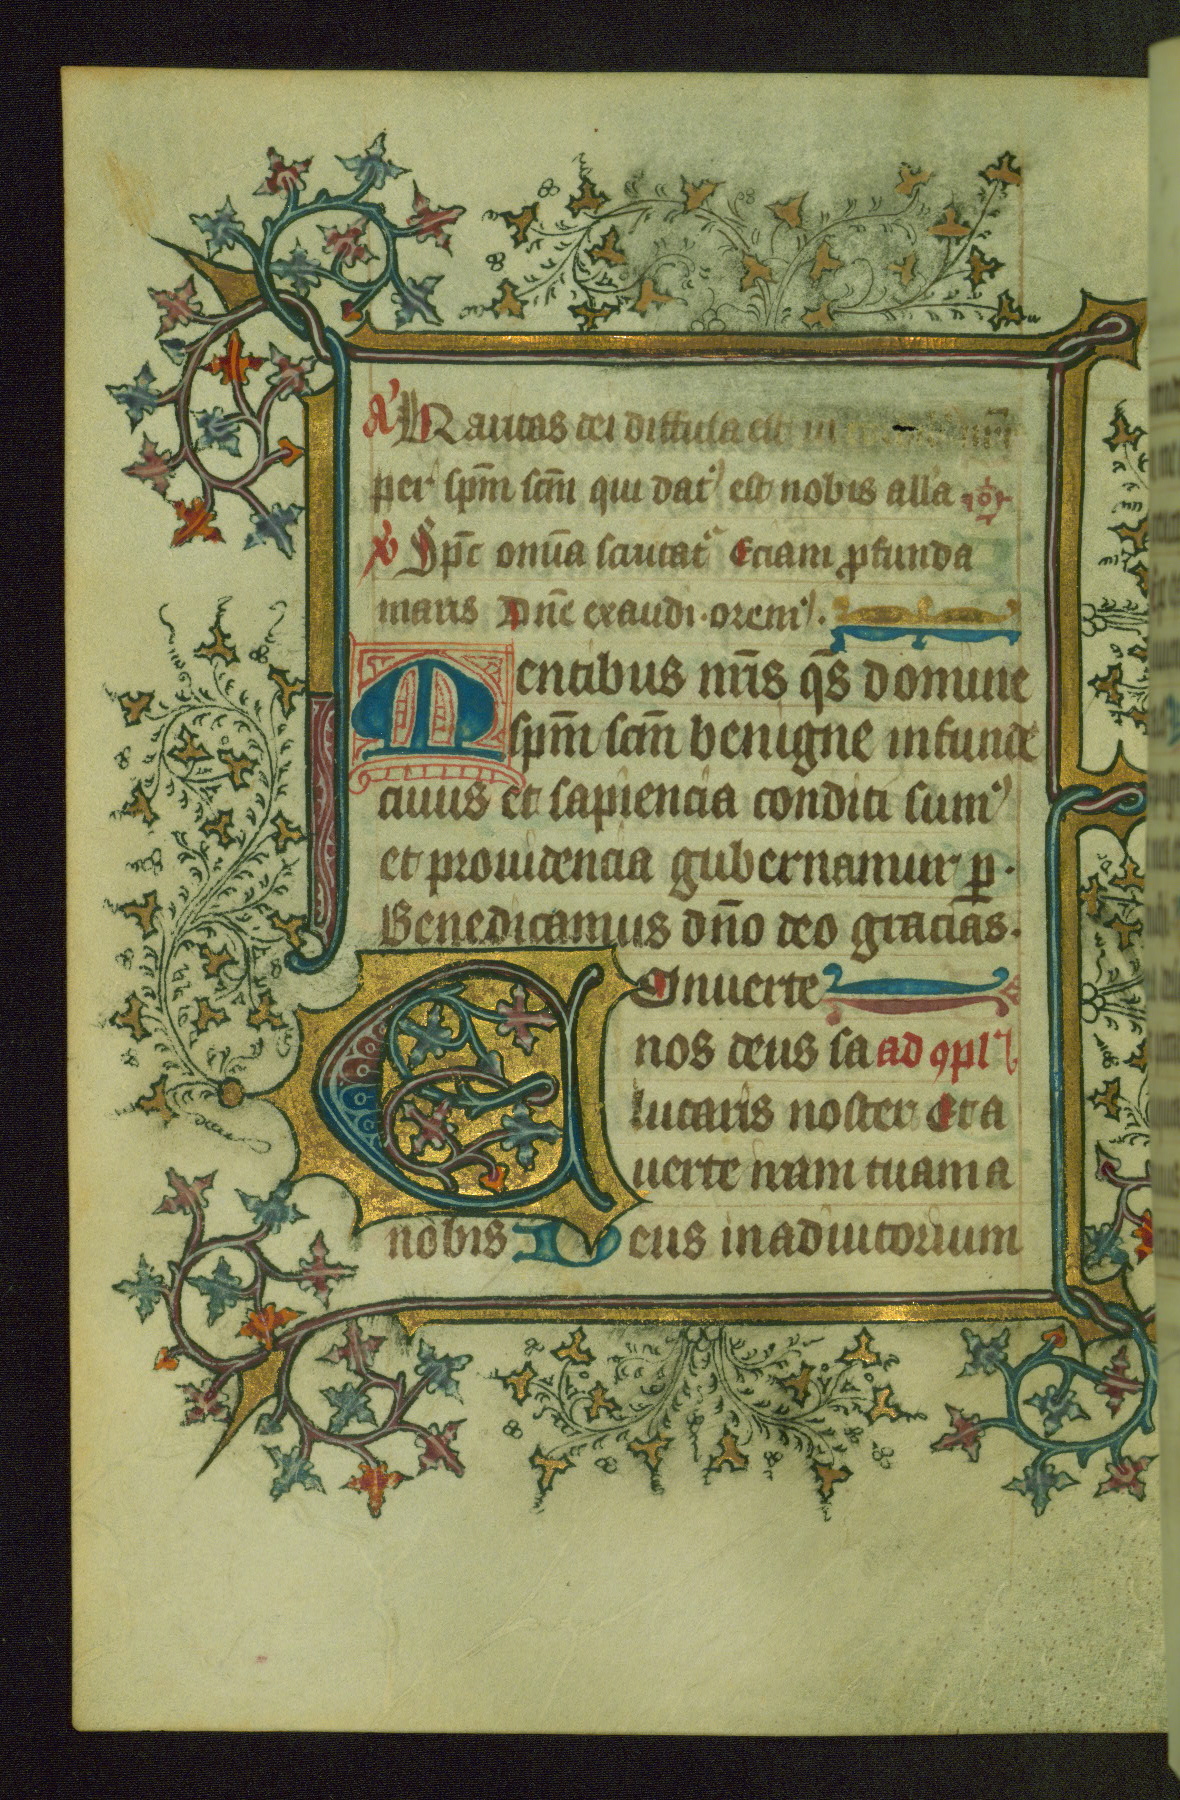 A' Karitas dei diffusa est in
per sp̄m sc̄m qui dat' est nobis alla
v' Sp̄c omn̄a scrutat' Eciam ꝓfunda
maris Dn̄e exaudi orem'.
Mentibus nr̄is qs̄ domine
sp̄m sc̄m benigne infunde
cuius et sapiencia conditi sum'
et prouidencia gubernamur ꝑ.
Benedicamus dn̄o deo gracias.
Conuerte
nos deus sa ad ꝯpl'
lutaris noster Et a
uerte iram tuam a
nobis Deus in adiutorium